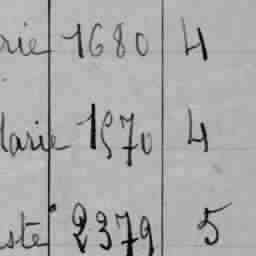 rie 1680 4
larie 1570 4
ste 2379 5